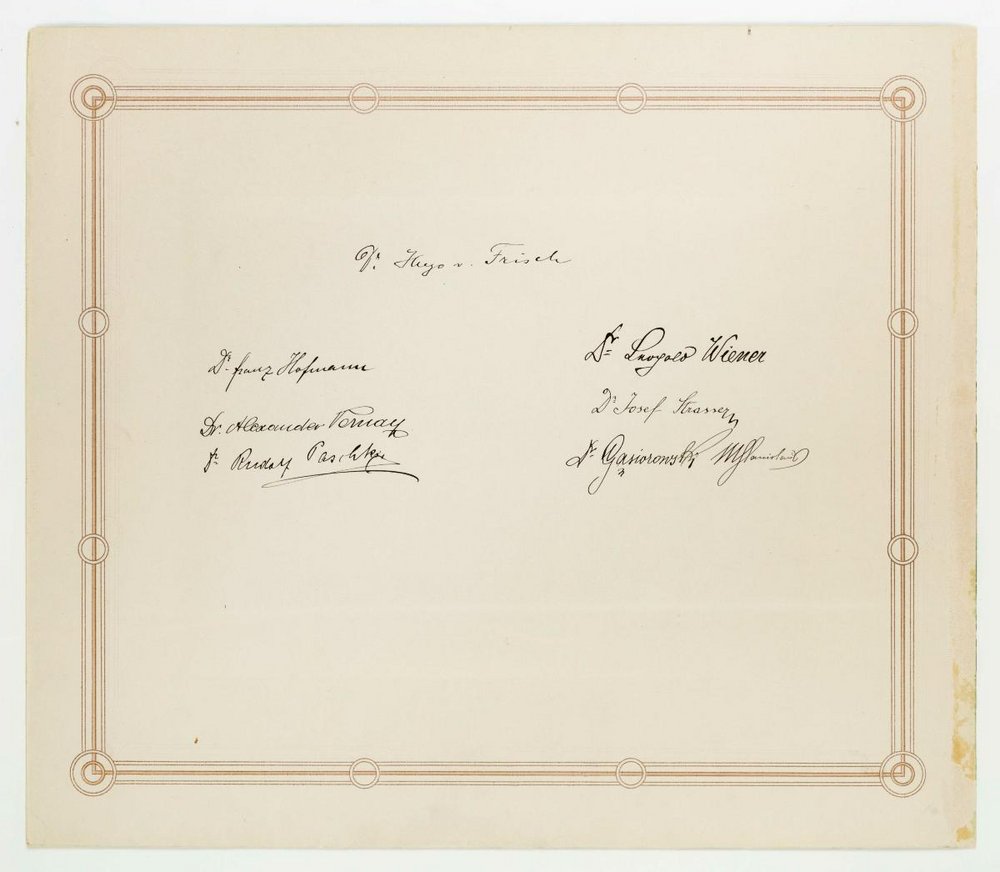 Dr. Hugo v. Frisch
Dr. Franz Hofmann
Dr. Alexander Vernay
Dr. Rudolf Paschkis
Dr. Leopold Wiener
Dr. Josef Strasser
Dr. Gąsiorowski